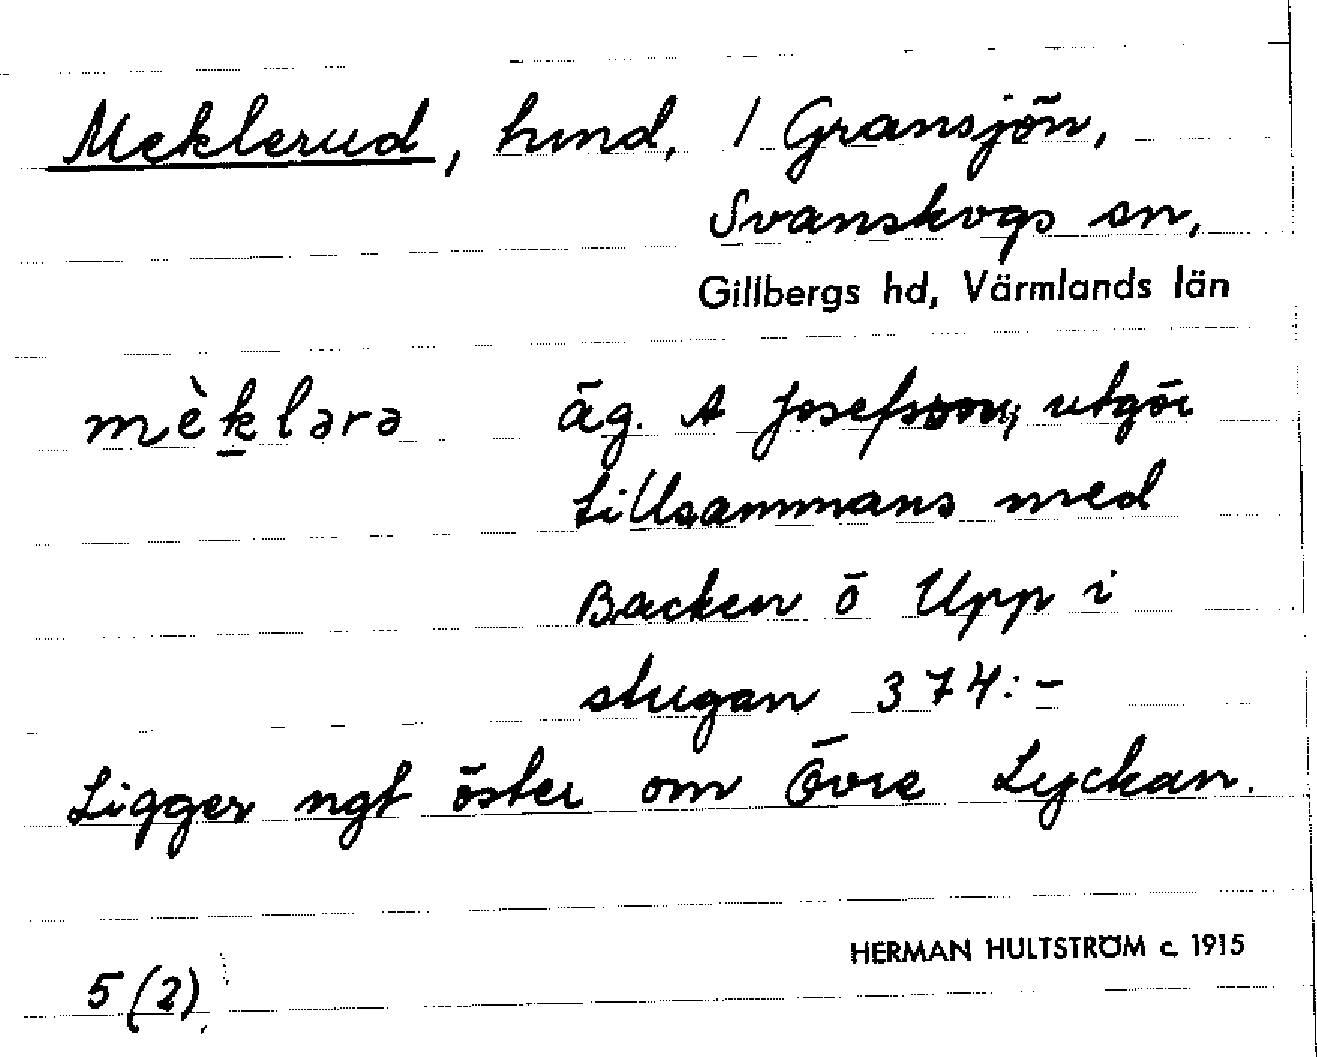 Meklerud, hmd, / Gransjön,
Svanskogs sn,
Gillbergs hd, Värmlands län
mèk̲lərə äg. A Josefsson, utgör
tillsammans med
Backen ö Upp i
stugan 374:-
Ligger ngt öster om Övre Lyckan.
HERMAN HULTSTRÖM c. 1915
5 (2)